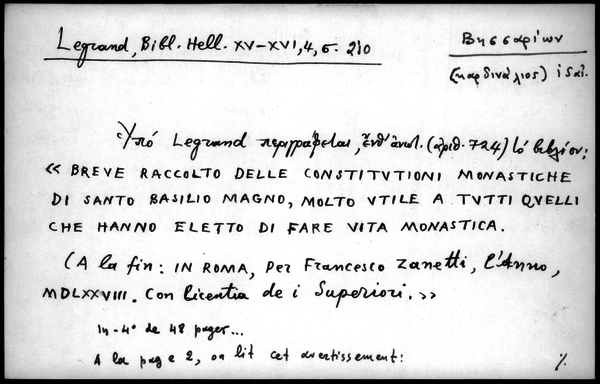 Legrand, Bibl. Hell. XV–XVI, 4, σ. 210
Βησσαρίων
(καρδινάλιος) ἰδαί.
Ὑπό Legrand περιγράφεται, ἔνθ' ἀνωτ. (ἀριθ. 724) τό βιβλίον:
« BREVE RACCOLTO DELLE CONSTITVTIONI MONASTICHE
DI SANTO BASILIO MAGNO, MOLTO VTILE A TVTTI QVELLI
CHE HANNO ELETTO DI FARE VITA MONASTICA.
(A la fin: IN ROMA, Per Francesco Zanetti, l'Anno,
MDLXXVIII. Con licentia de i Superiori.»
In-4° de 48 pages...
A la page 2, on lit cet avertissement: